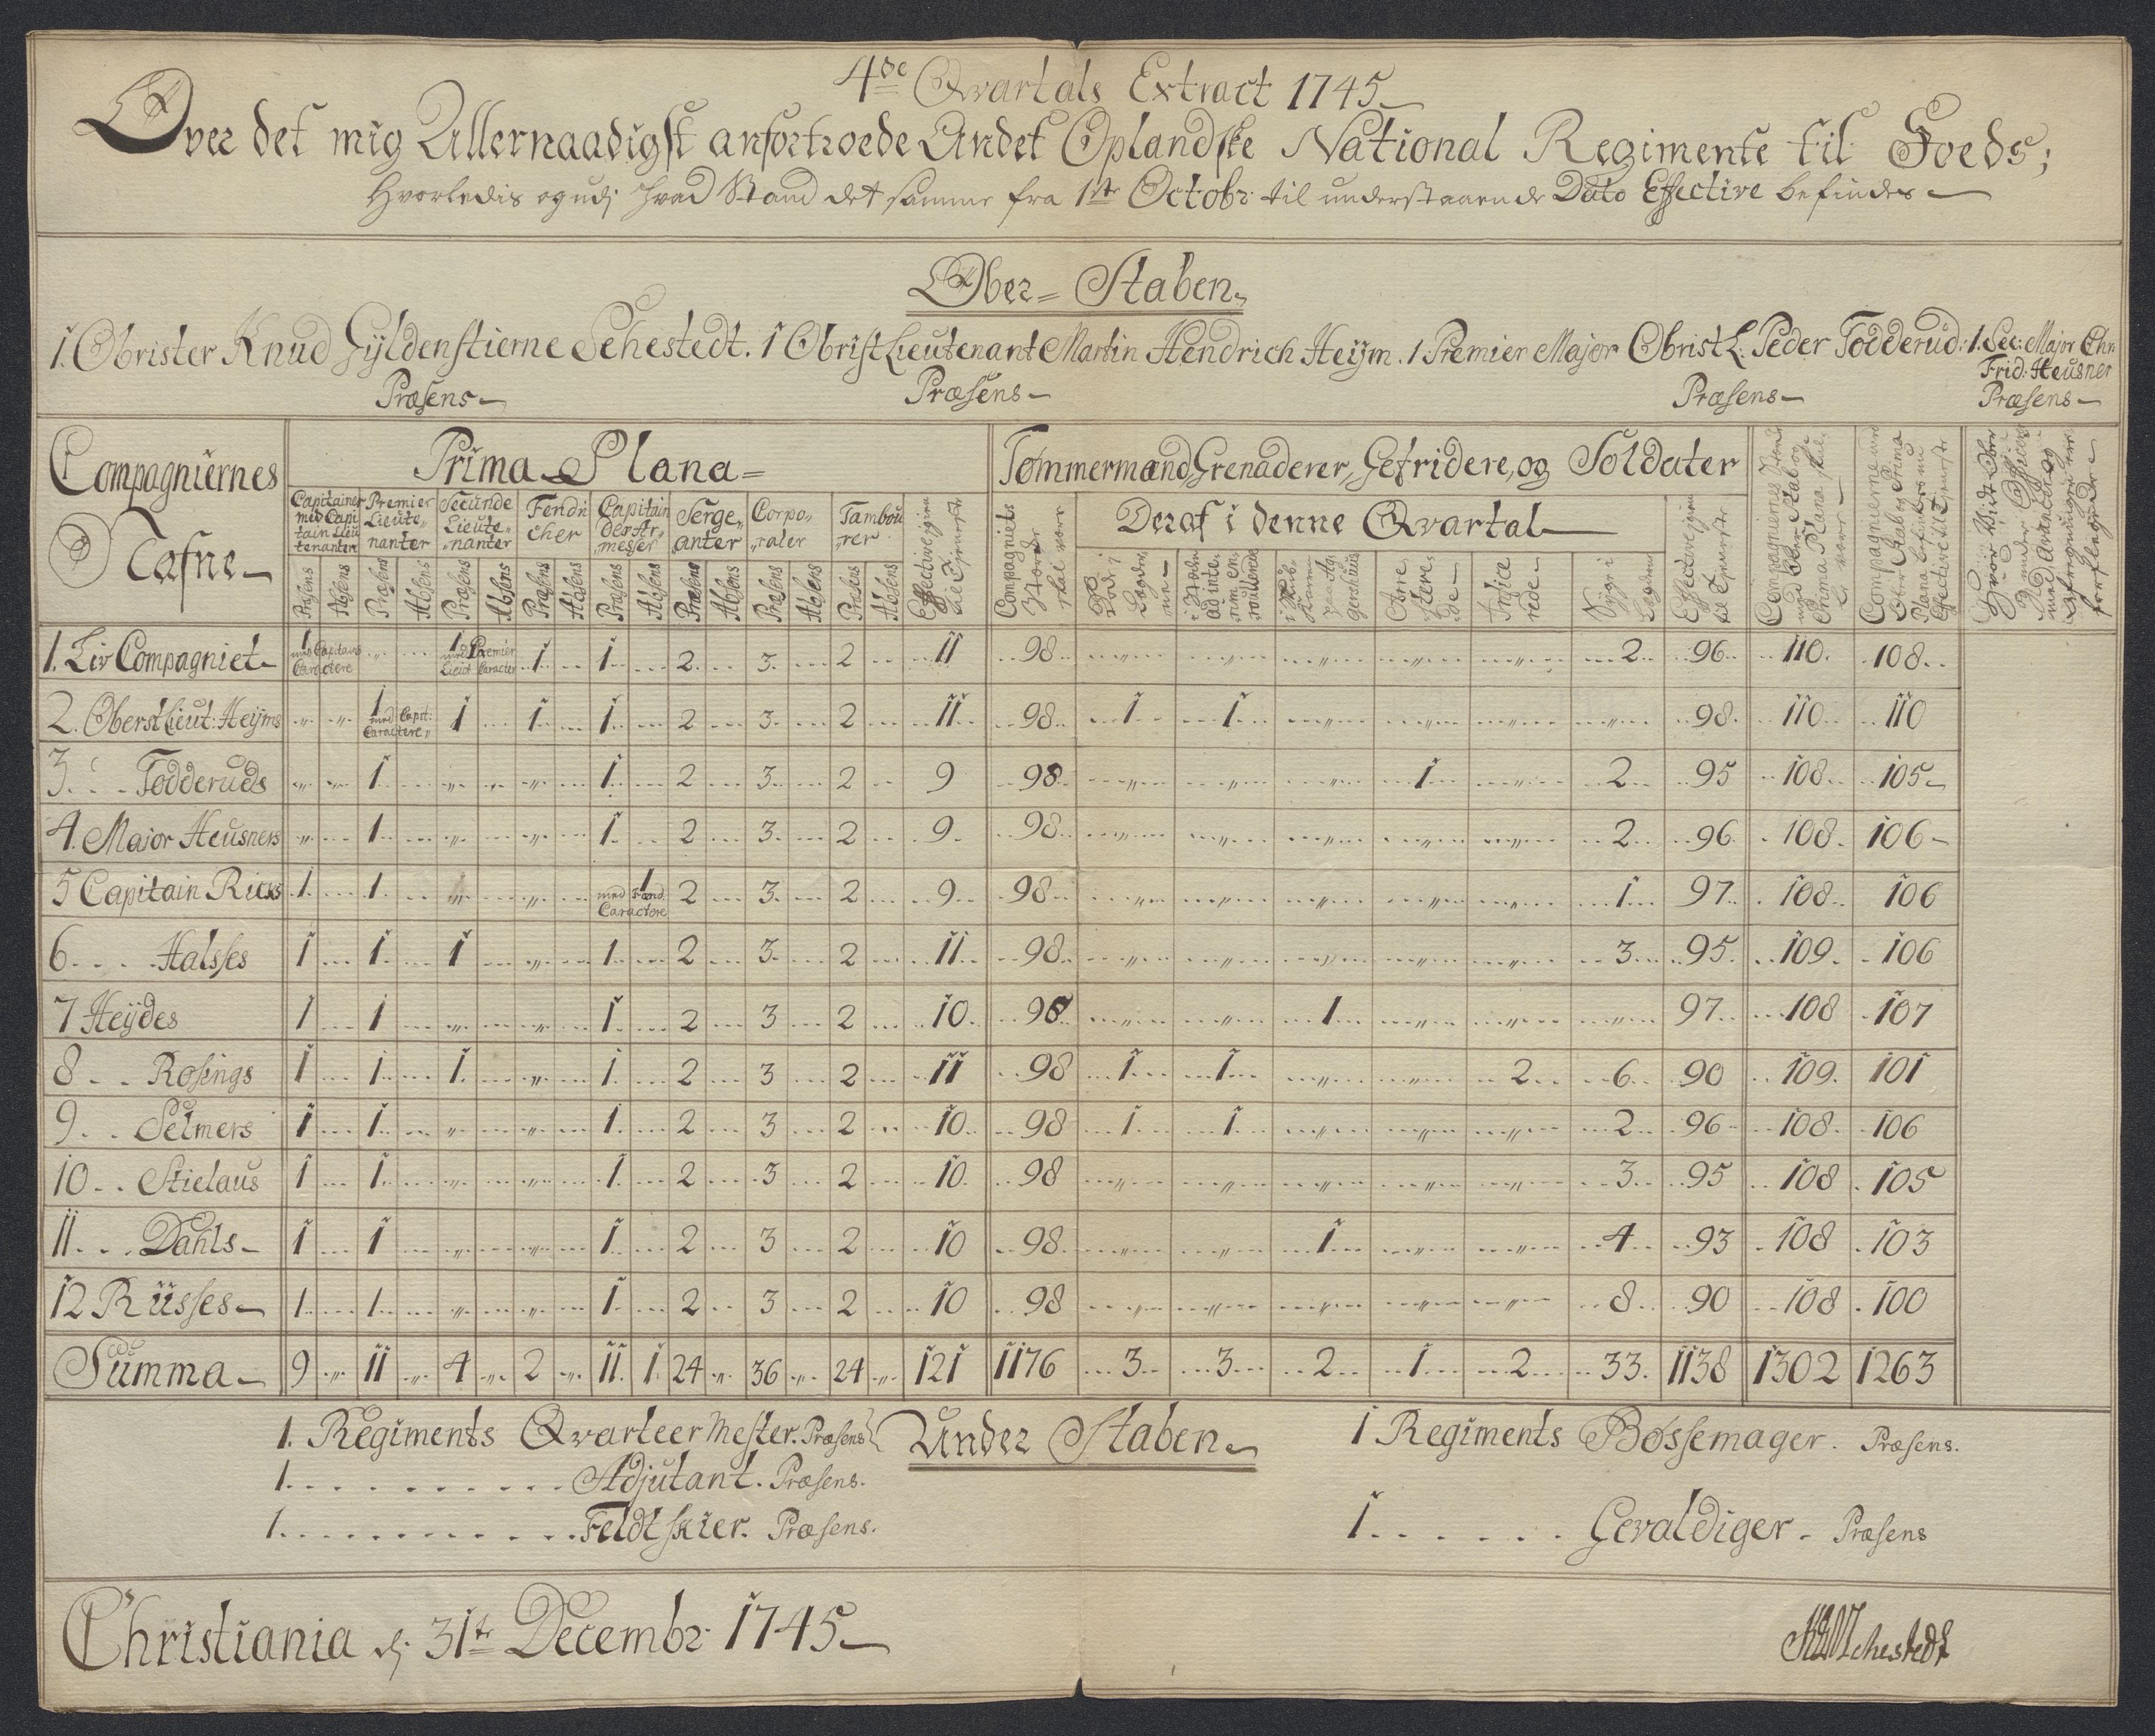 4de Qvartals Extract 1745
Over det mig Allernaadigst anfortroede Andet Oplandske National Regimente til Foeds;
Hvorledis og udj hvad Stand det samme fra 1te Octobr: til understaaende Dato Effective befindes
Ober=Staben
1. Obrister Knud Gyldenstierne Sehestedt. 1 ObristLieutenant Martin Hendrich Heÿm. 1 Premier Major Obrist L: Peder Todderud. 1. Sec: Major Chr:
Frid: Heusner
Præsens Præsens Præsens Præsens
Compagniernes Nafne
Prima Plana
Tømmermænd, Grenaderer, Gefridere, og Soldater
Capitainer med Capitain Lieutenanter Premier Lieutenanter Secunde Lieutenanter Fendricher Capitain des Armesser Sergeanter Corporaler Tambourer
Præsens Absens Præsens Absens Præsens Absens Præsens Absens Præsens Absens Præsens Absens Præsens Absens Præsens Absens
Effective til Tjeneste
Compagniets Storde skal være
Deraf i denne Qvartal
Død
ad interim enroullerede
Nÿge i Lagden
Effective til Tjeneste
Compagniernes med Ober Stab og Prima Plana skal være
Compagnierne med Ober Stab og Prima Plana Effective til Tjeneste
1. Liv Compagniet 1 med Capitains Caractere 1 med Premier Lieut Caracter 1 1 2 3 2 11 98 2 96 110 108
2. Oberst Lieut: Heÿms 1 med Capit: Caractere 1 1 1 2 3 2 11 98 1 1 98 110 110
3. Todderuds 1 1 2 3 2 9 98 1 2 95 108 105
4. Major Heusners 1 1 2 3 2 9 98 2 96 108 106
5 Capitain Ricks 1 1 1 med Fænd. Caractere 2 3 2 9 98 1 97 108 106
6. Halsses 1 1 1 1 2 3 2 11 98 3 95 109 106
7 Heÿdes 1 1 1 2 3 2 10 98 1 97 108 107
8 Rosings 1 1 1 1 2 3 2 11 98 1 1 2 6 90 109 101
9. Selmers 1 1 1 2 3 2 10 98 1 1 2 96 108 106
10 Stielaus 1 1 1 2 3 2 10 98 3 95 108 105
11 Dahls 1 1 1 2 3 2 10 98 1 4 93 108 103
12 Rüsses 1 1 1 2 3 2 10 98 8 90 108 100
Summa 9 11 4 2 11 1 24 36 24 121 1176 3 3 2 1 2 33 1138 1302 1263
Under Staben
1. Regiments Qvarteer Mester. Præsens 1 Regiments Bøssemager. Præsens.
1. Adjutant. Præsens.
1. Feldtskier. Præsens. 1 Gevaldiger. Præsens
Christiania d: 31te Decembr: 1745
Sehestedt